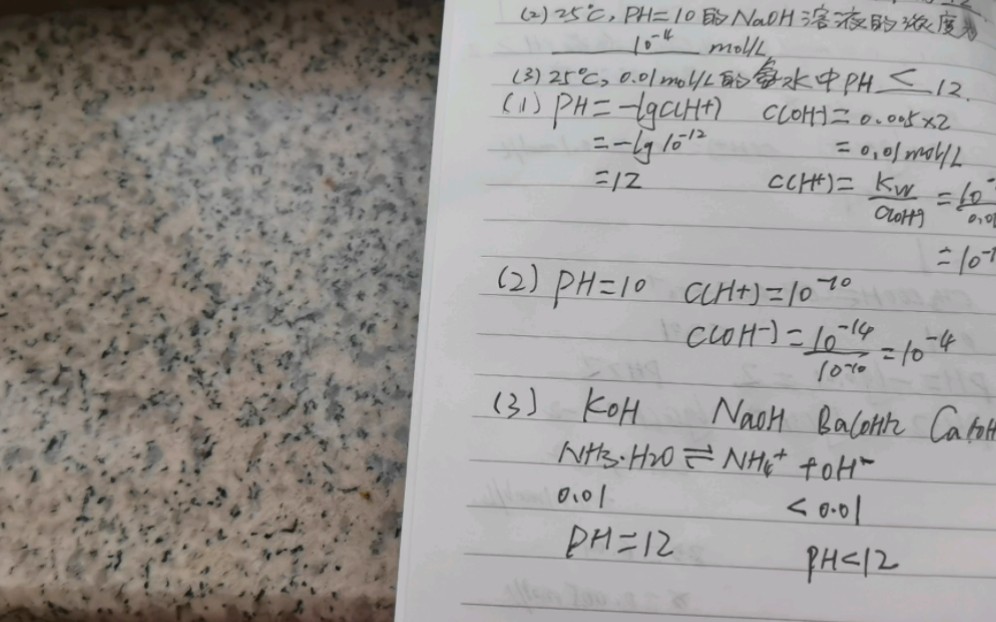 (2) 25℃, PH=10的NaOH溶液的浓度为
10⁻⁴ mol/L
(3) 25℃, 0.01mol/L的氨水中PH < 12.
(1) PH=-lgC(H+) C(OH-)=0.005×2
=-lg10⁻¹² =0.01mol/L
=12 C(H+)= Kw/C(OH-) =
(2) PH=10 C(H+)=10⁻¹⁰
C(OH-)= 10⁻¹⁴/10⁻¹⁰ =10⁻⁴
(3) KOH NaOH Ba(OH)2
NH3·H2O ⇌ NH4⁺ +OH⁻
0.01 <0.01
PH=12 PH<12